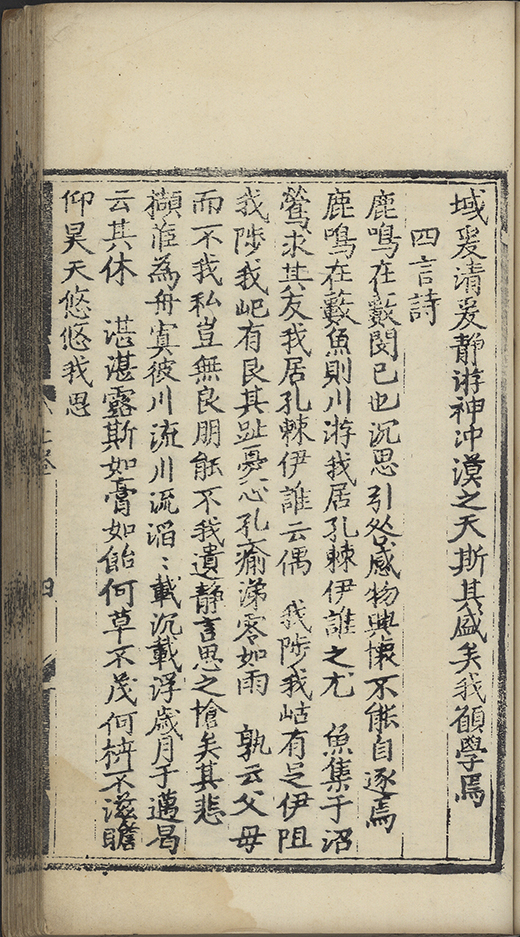 域爰清爰静游神沖漠之天斯其盛矣我願學焉
四言詩
鹿鳴在藪閔己也沉思引咎感物興懷不能自逐焉
鹿鳴在藪魚則川游我居孔棘伊誰之尤　魚集于沼
鶯求其友我居孔棘伊誰云偶　我陟我岵有足伊阻
我陟我屺有艮其趾憂心孔瘉涕零如雨　孰云父母
而不我私豈無良朋能不我遺静言思之愴矣其悲
為舟寘彼川流川流滔〻載沉載浮歳月于邁曷
云其休　湛湛露斯如膏如飴何草不茂何不滋瞻
仰昊天悠悠我思
四